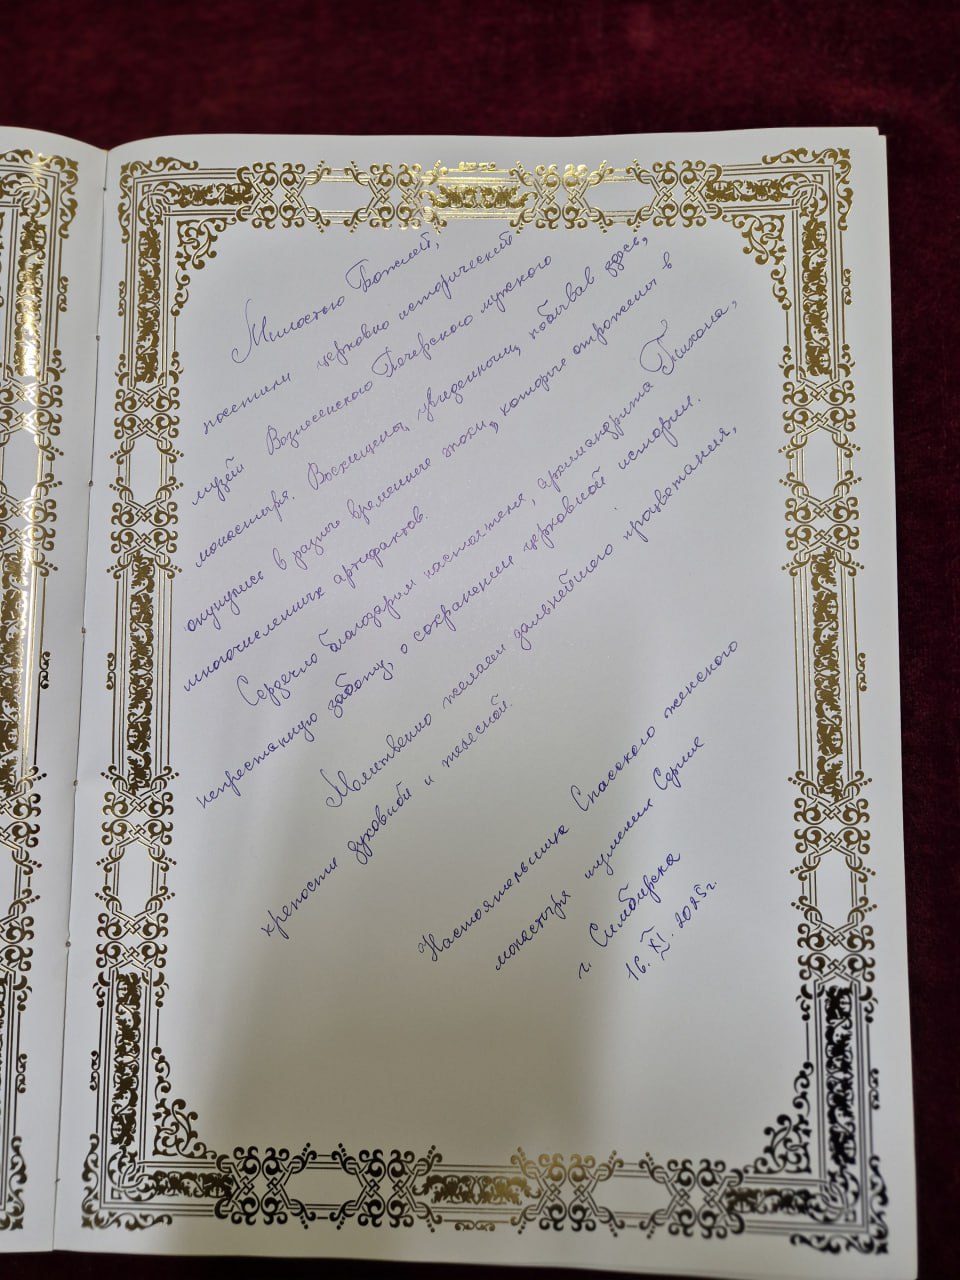 Милостью Божией,
посетили церковно исторический
музей Вознесенского Печерского мужского
монастыря. Восхищены, увиденным, побывав здесь,
окунулись в разные временные эпохи, которые отражены в
многочисленных артефактов.
Сердечно благодарим настоятеля, архимандрита Тихона,
непрестанную заботу, о сохранении церковной истории.
Молитвенно желаем дальнейшего процветания,
крепости духовной и телесной.
Настоятельница Спасского женского
монастыря игумения
г. Симбирска
16. XI. 2025г.